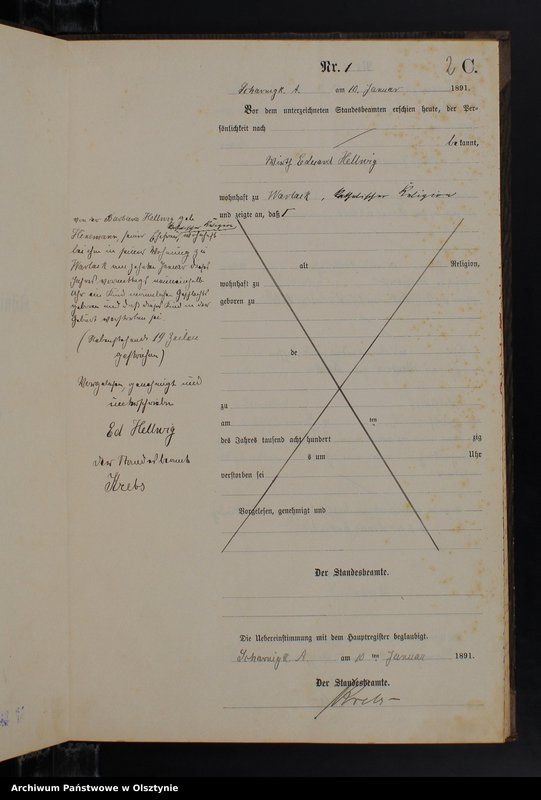 Nr. 1
2 C.
A. am 10. Januar 1891.
Vor dem unterzeichneten Standesbeamten erschien heute, der Per-
sönlichkeit nach
bekannt,
Wirth Eduard Hellwig
wohnhaft zu Warlack, katholischer Religion
und zeigte an, daß
von der Barbara Hellwig geb.
katholischer Religion
seiner Ehefrau, wohnhaft
bei ihm in seiner Wohnung zu
Warlack am zehnten Januar dieses
Jahres vormittags
Uhr ein Kind männlichen Geschlechts
geboren und daß dieses Kind in der
Geburt verstorben sei.
(Nebenstehende 19 Zeilen
gestrichen)
Vorgelesen, genehmigt und
unterschrieben
Ed Hellwig
Der Standesbeamte
Krebs
alt Religion,
wohnhaft zu
geboren zu
de
zu
am ten
des Jahres tausend acht hundert zig
s um Uhr
verstorben sei
Vorgelesen, genehmigt und
Der Standesbeamte.
Die Uebereinstimmung mit dem Hauptregister beglaubigt.
A. am 10 ten Januar 1891.
Der Standesbeamte.
Krebs
Archiwum Państwowe w Olsztynie